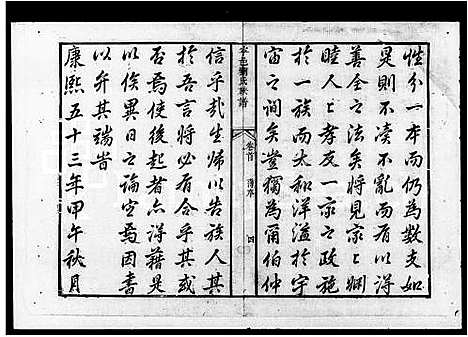 性分一本而仍為數支如
是則不凌不亂而有以得
善全之法矣將見家之嫻
睦人之孝友一家之政施
於一族而太和洋溢於宇
宙之詢矣豈獨為爾伯仲
劉氏族譜
卷首
舊序
四
信乎哉生歸以告族人其
於吾言將必有合乎其或
否焉使後起者亦得藉是
以俟異日之論定焉因書
以弁其端旹
康熙五十三年甲午秋月